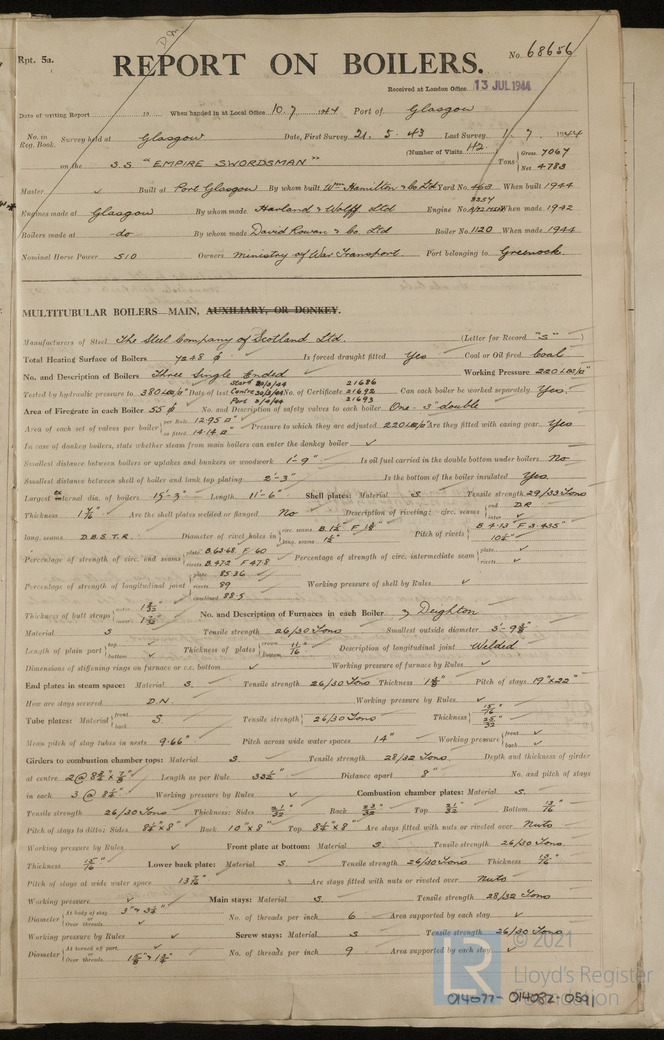 D.M.
Rpt. 5a.
No. 68656
REPORT ON BOILERS.
Received at London Office 13 JUL 1944
Date of writing Report 19 When handed in at Local Office 10.7. 1944 Port of Glasgow
No. in Reg. Book. Survey held at Glasgow Date, First Survey 21. 5. 43 Last Survey 1. 7. 1944
(Number of Visits 42
on the S.S. "EMPIRE SWORDSMAN" Tons { Gross 7067 Net 4783
Master ✓ Built at Port Glasgow By whom built Wm Hamilton & Co Ltd Yard No. 463 When built 1944
Engines made at Glasgow By whom made Harland & Wolff Ltd Engine No. When made 1942
Boilers made at do By whom made David Rowan & Co. Ltd Boiler No. 1120 When made 1944
Nominal Horse Power 510 Owners Ministry of War Transport. Port belonging to Greenock.
MULTITUBULAR BOILERS MAIN, AUXILIARY, OR DONKEY.
Manufacturers of Steel The Steel Company of Scotland Ltd. (Letter for Record "S")
Total Heating Surface of Boilers 7248 Is forced draught fitted Yes Coal or Oil fired Coal
No. and Description of Boilers Three Single Ended Working Pressure 220 LBS/□"
Tested by hydraulic pressure to 380 LBS/□" Date of test No. of Certificate 21686 21692 21693 Can each boiler be worked separately Yes.
Area of Firegrate in each Boiler 55 No. and Description of safety valves to each boiler One - 3" double
Area of each set of valves per boiler { per Rule 12.95 □" as fitted 14.14 □" Pressure to which they are adjusted 220 LBS/□" Are they fitted with easing gear Yes
In case of donkey boilers, state whether steam from main boilers can enter the donkey boiler ✓
Smallest distance between boilers or uptakes and bunkers or woodwork 1'-9" Is oil fuel carried in the double bottom under boilers No
Smallest distance between shell of boiler and tank top plating 2'-3" Is the bottom of the boiler insulated Yes
Largest external dia. of boilers 15'-3" Length 11'-6" Shell plates: Material S Tensile strength 29/33 Tons
Thickness Are the shell plates welded or flanged No Description of riveting: circ. seams { end D.R. inter ✓
long. seams D.B.S.T.R. Diameter of rivet holes in { circ. seams long. seams Pitch of rivets { B 4.13" F 3.435"
Percentage of strength of circ. end seams { plate B.63.68 F.60 rivets B.47.2 F 47.8 Percentage of strength of circ. intermediate seam { plate ✓ rivets ✓
Percentage of strength of longitudinal joint { plate 85.36 rivets 89 combined 88.5 Working pressure of shell by Rules ✓
Thickness of butt straps { outer inner No. and Description of Furnaces in each Boiler 3 Deighton
Material S Tensile strength 26/30 Tons Smallest outside diameter
Length of plain part { top ✓ bottom ✓ Thickness of plates { crown bottom 11/16" Description of longitudinal joint Welded
Dimensions of stiffening rings on furnace or c.c. bottom ✓ Working pressure of furnace by Rules ✓
End plates in steam space: Material S. Tensile strength 26/30 Tons Thickness Pitch of stays 19" x 22"
How are stays secured D.N. Working pressure by Rules ✓
Tube plates: Material { front back S. Tensile strength { 26/30 Tons Thickness { 15/16" 25/32"
Mean pitch of stay tubes in nests 9.66" Pitch across wide water spaces 14" Working pressure { front ✓ back ✓
Girders to combustion chamber tops: Material S. Tensile strength 28/32 Tons. Depth and thickness of girder
at centre Length as per Rule 33½" Distance apart 8" No. and pitch of stays
in each Working pressure by Rules ✓ Combustion chamber plates: Material S.
Tensile strength 26/30 Tons Thickness: Sides 21/32" Back 23/32" Top 21/32" Bottom 13/16"
Pitch of stays to ditto: Sides Back 10" x 8" Top Are stays fitted with nuts or riveted over Nuts
Working pressure by Rules ✓ Front plate at bottom: Material S. Tensile strength 26/30 Tons
Thickness 15/16" Lower back plate: Material S. Tensile strength 26/30 Tons Thickness
Pitch of stays at wide water space Are stays fitted with nuts or riveted over Nuts
Working pressure ✓ Main stays: Material S. Tensile strength 28/32 Tons
Diameter { At body of stay or Over threads No. of threads per inch 6 Area supported by each stay ✓
Working pressure by Rules ✓ Screw stays: Material S Tensile strength 26/30 Tons
Diameter { At turned off part or Over threads No. of threads per inch 9 Area supported by each stay ✓
LR © 2021
Lloyd's Register
Foundation
014077-014082-0591